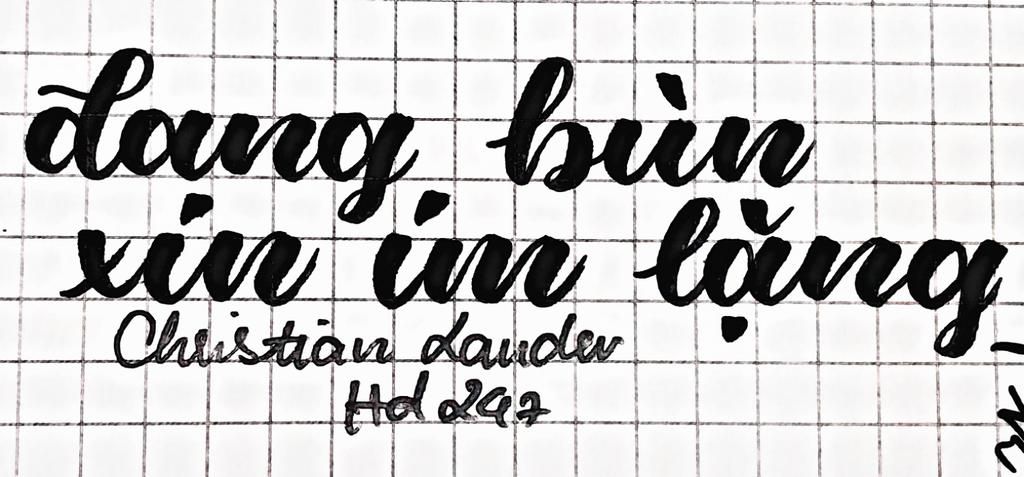 đang bùn
xin im lặng
Christian Lander
Hd 247